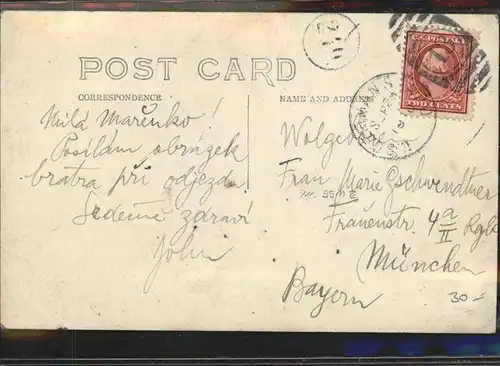 POST CARD
CORRESPONDENCE
NAME AND ADDRESS
U.S. POSTAGE
TWO CENTS
Milá Mařenko!
Posílám obrázek
bratra při odjezd.
Srdečně zdraví
John
Wolgeb.
Frau Marie Gschwendtner
Frauenstr. 4 a/II Rgb
München
Bayern
30-